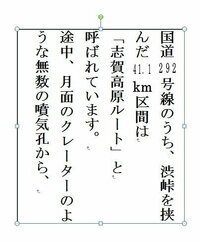 国道292号線のうち、渋峠を挟
んだ41.1km区間は
「志賀高原ルート」と
呼ばれています。
途中、月面のクレーターのよ
うな無数の噴気孔から、